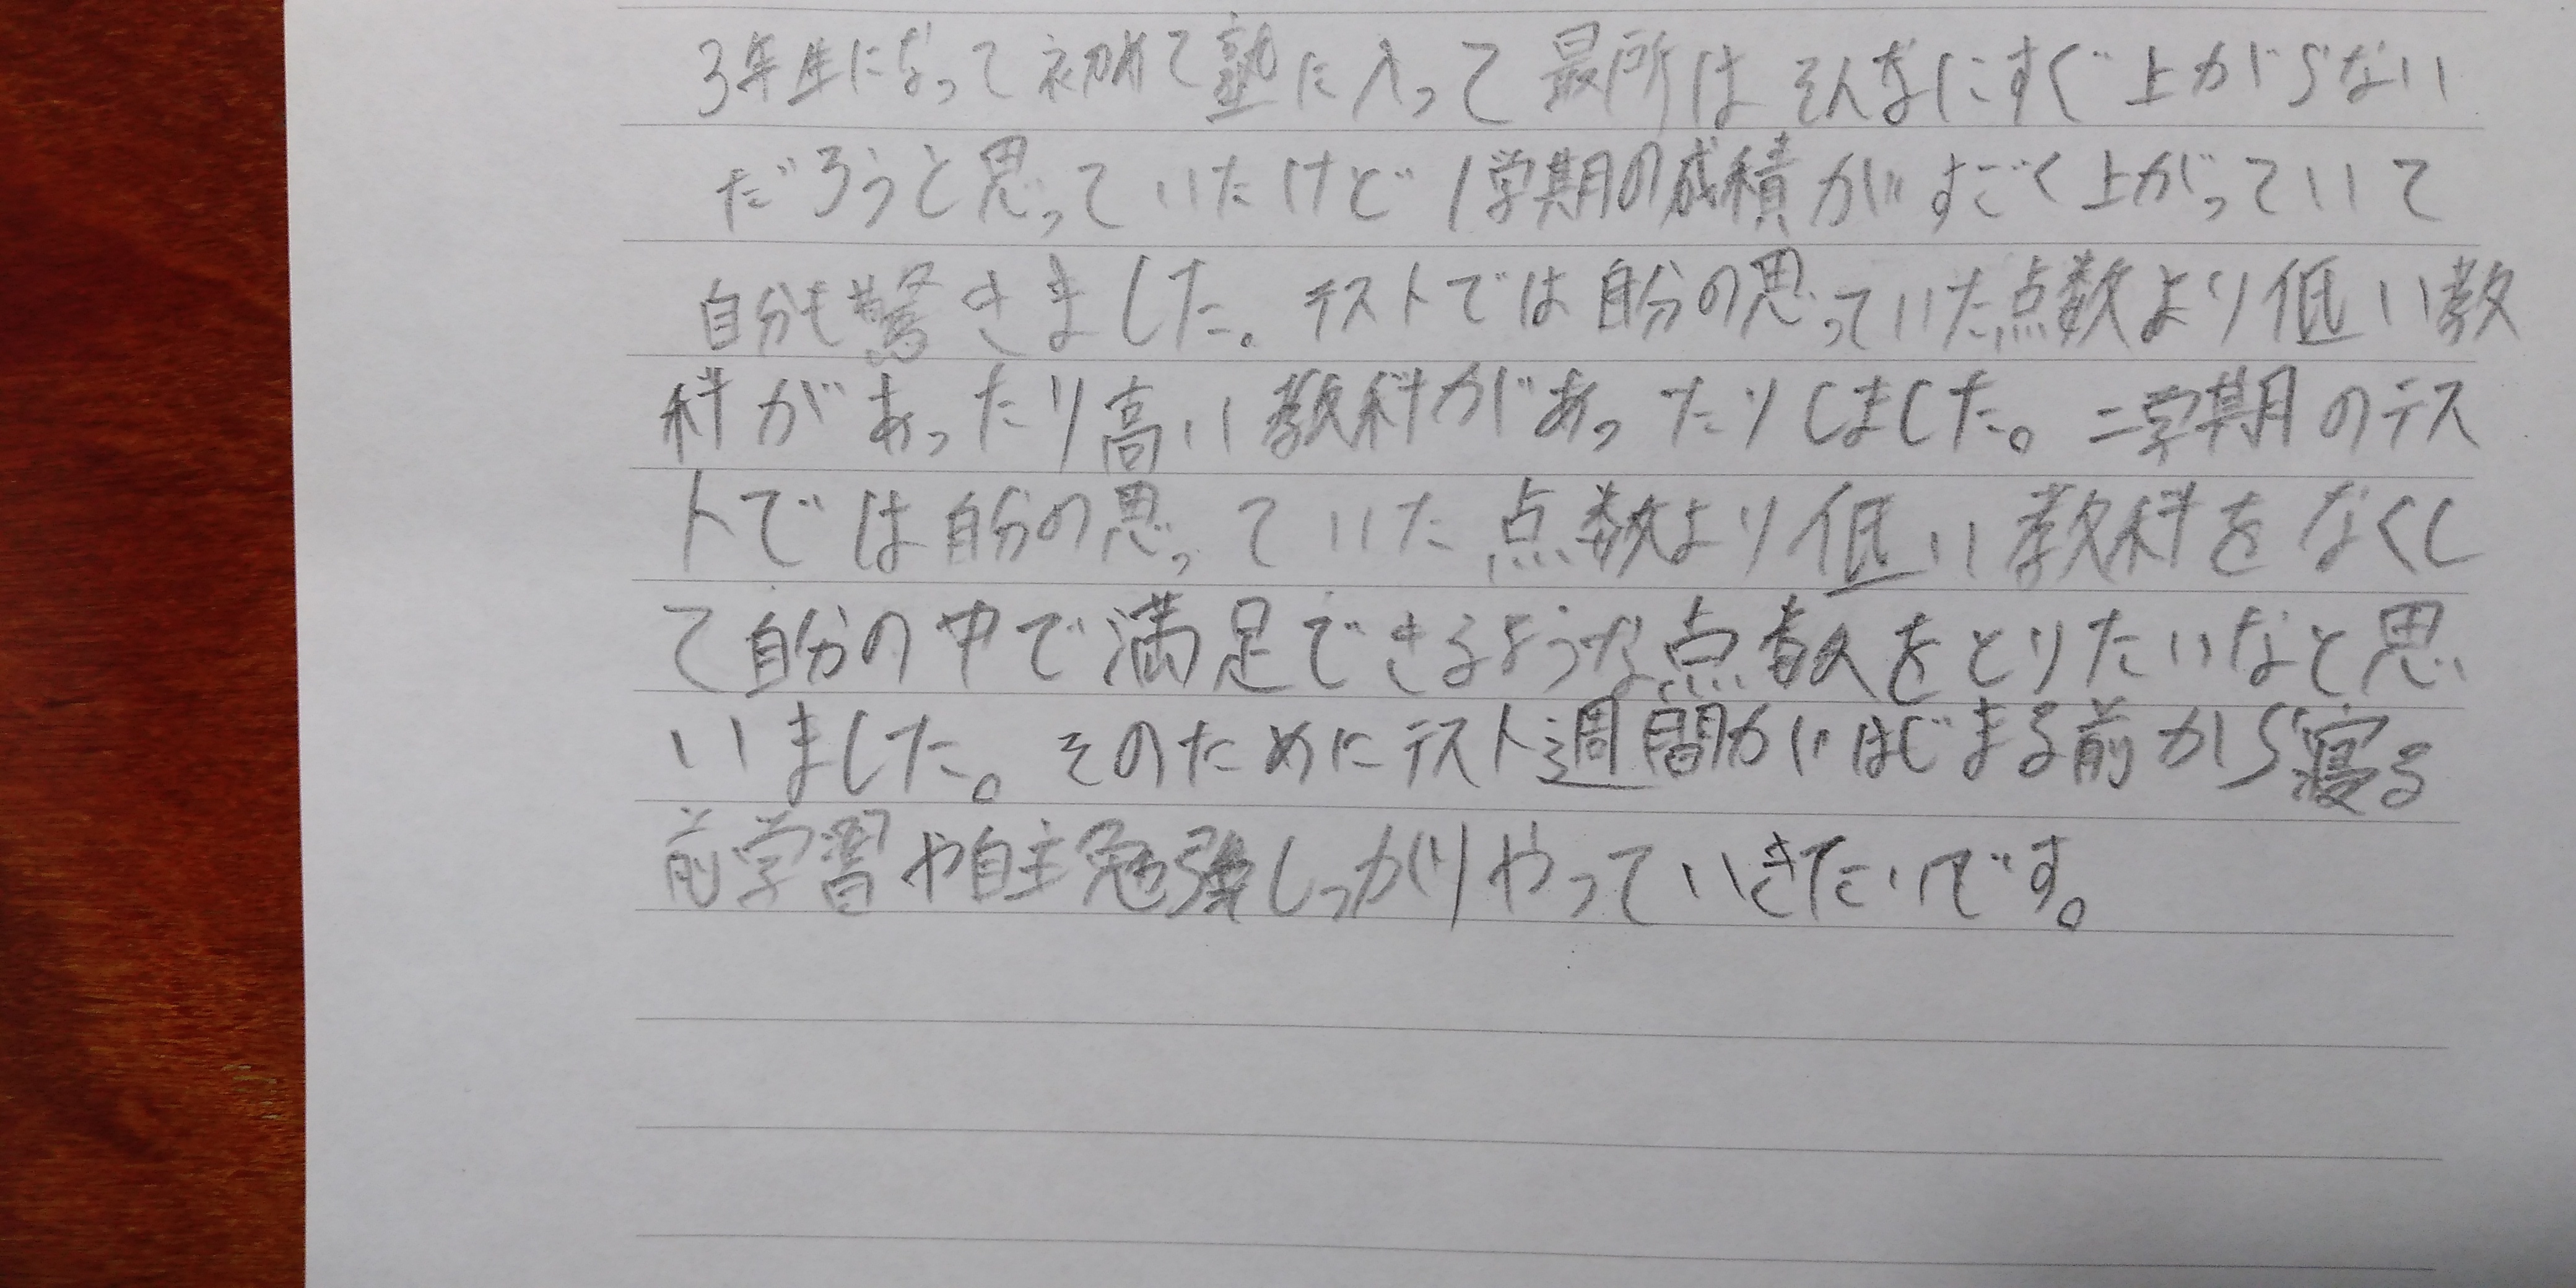 3年生になって初めて塾に入って最所はそんなにすぐ上がらない
だろうと思っていたけど1学期の成積がすごく上がっていて
自分も驚きました。テストでは自分の思っていた点数より低い教
科があったり高い教科があったりしました。二学期のテス
トでは自分の思っていた点数より低い教科をなくし
て自分の中で満足できるような点数をとりたいなと思
いました。そのためにテスト週間がはじまる前から寝る
前学習や自主勉強しっかりやっていきたいです。